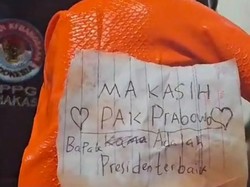 PPG
MAKAS
MA KASIH
PAK Prabowo
Bapak kamu Adalah
Presiden terbaik